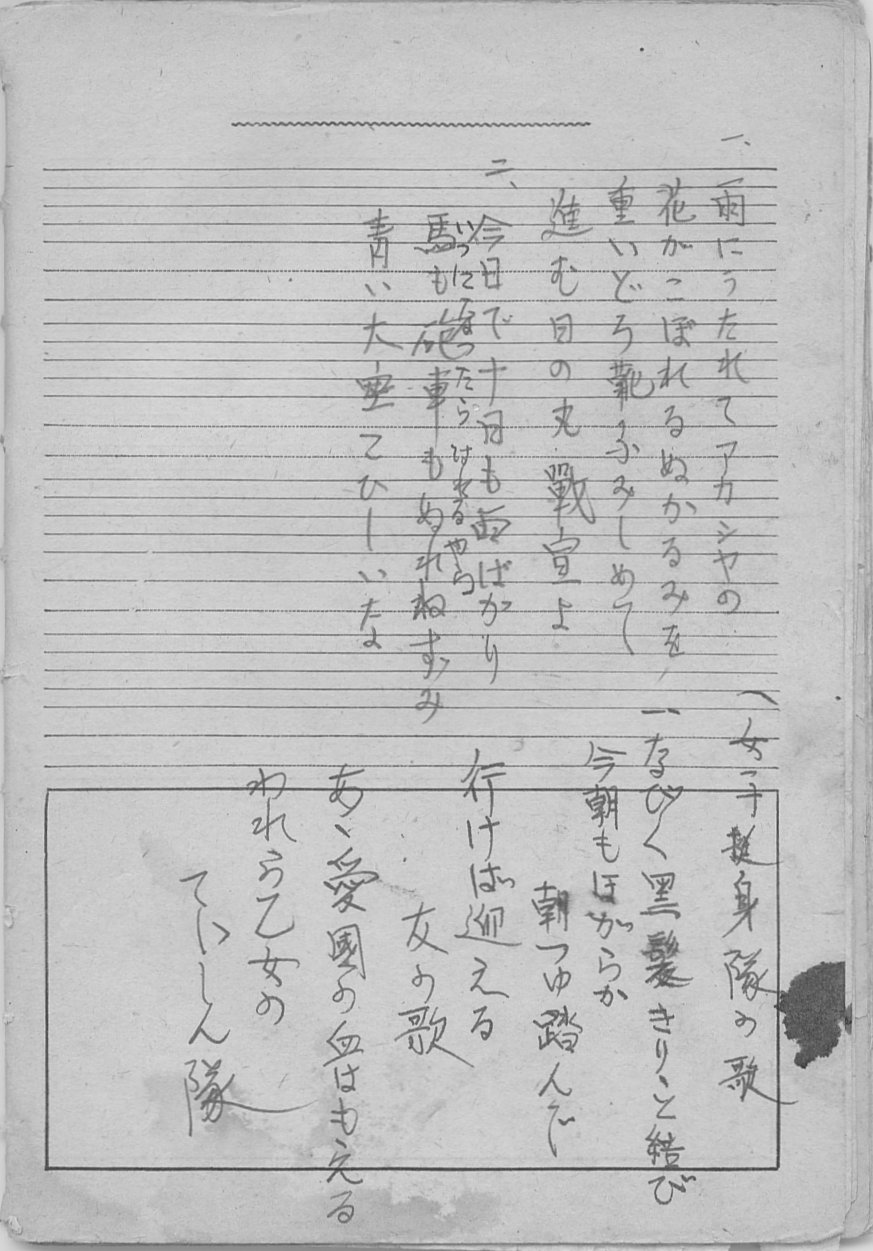 一、雨にうたれてアカシヤの
花がこぼれるぬかるみを
重いどろ靴ふみしめて
進む日の丸戰宣よ
二、今日で十日も雨ばかり
いつになったらはれるやら
馬も砲車もぬれねずみ
青い大空こひしいたよ
女子挺身隊の歌
一、なびく黑髮きりゝと結び
今朝もほがらか
朝つゆ踏んで
行けば迎える
友の歌
あゝ愛國の血はもえる
われら乙女の
ていしん隊